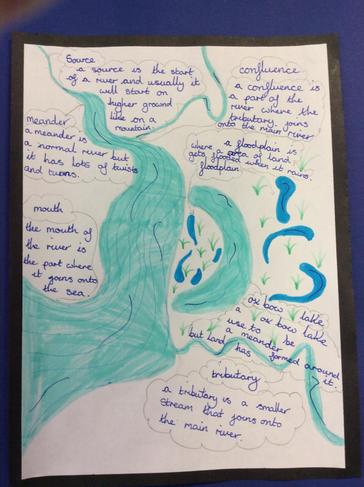 Source
a source is the start
of a river and usually it
will start on
higher ground
like on a
mountain.
confluence
a confluence is
a part of the
river where the
tributary joins
onto the main river
meander
a meander is
a normal river but
it has lots of twists
and turns.
a floodplain is
where a area of land
gets flooded when it rains.
floodplain
mouth
the mouth of
the river is
the part where
it joins onto
the sea.
ox bow lake
a ox bow lake
use to be
a meander
but land has formed around
it.
tributary
a tributary is a smaller
stream that joins onto
the main river.